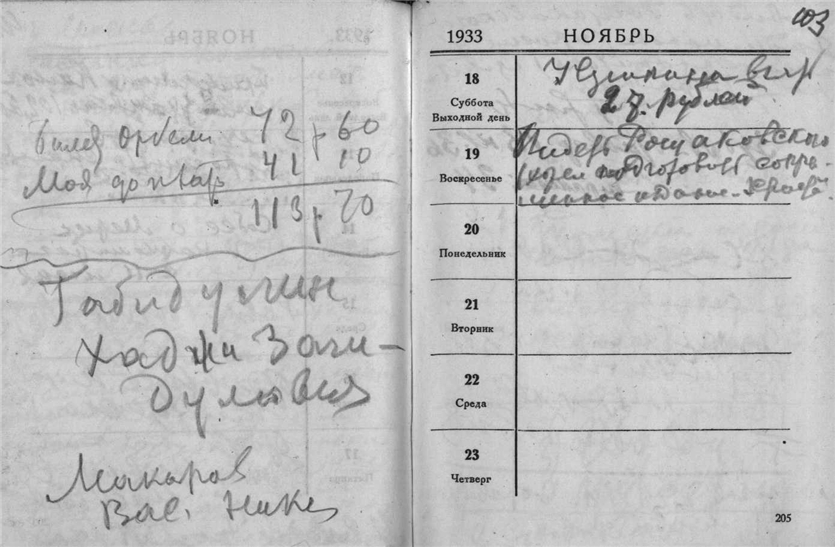 Билет Орбели 72 р 60
Моя доплата 41 10
113 р 70
Габидуллин
Хаджи Заги-
дуллович
Макаров
Вас. Ник.
103
1933 НОЯБРЬ
18
Суббота
Выходной день
У взял
27. рублей
19
Воскресенье
Росцаковского
подготовить сокра-
щенное издание
20
Понедельник
21
Вторник
22
Среда
23
Четверг
205